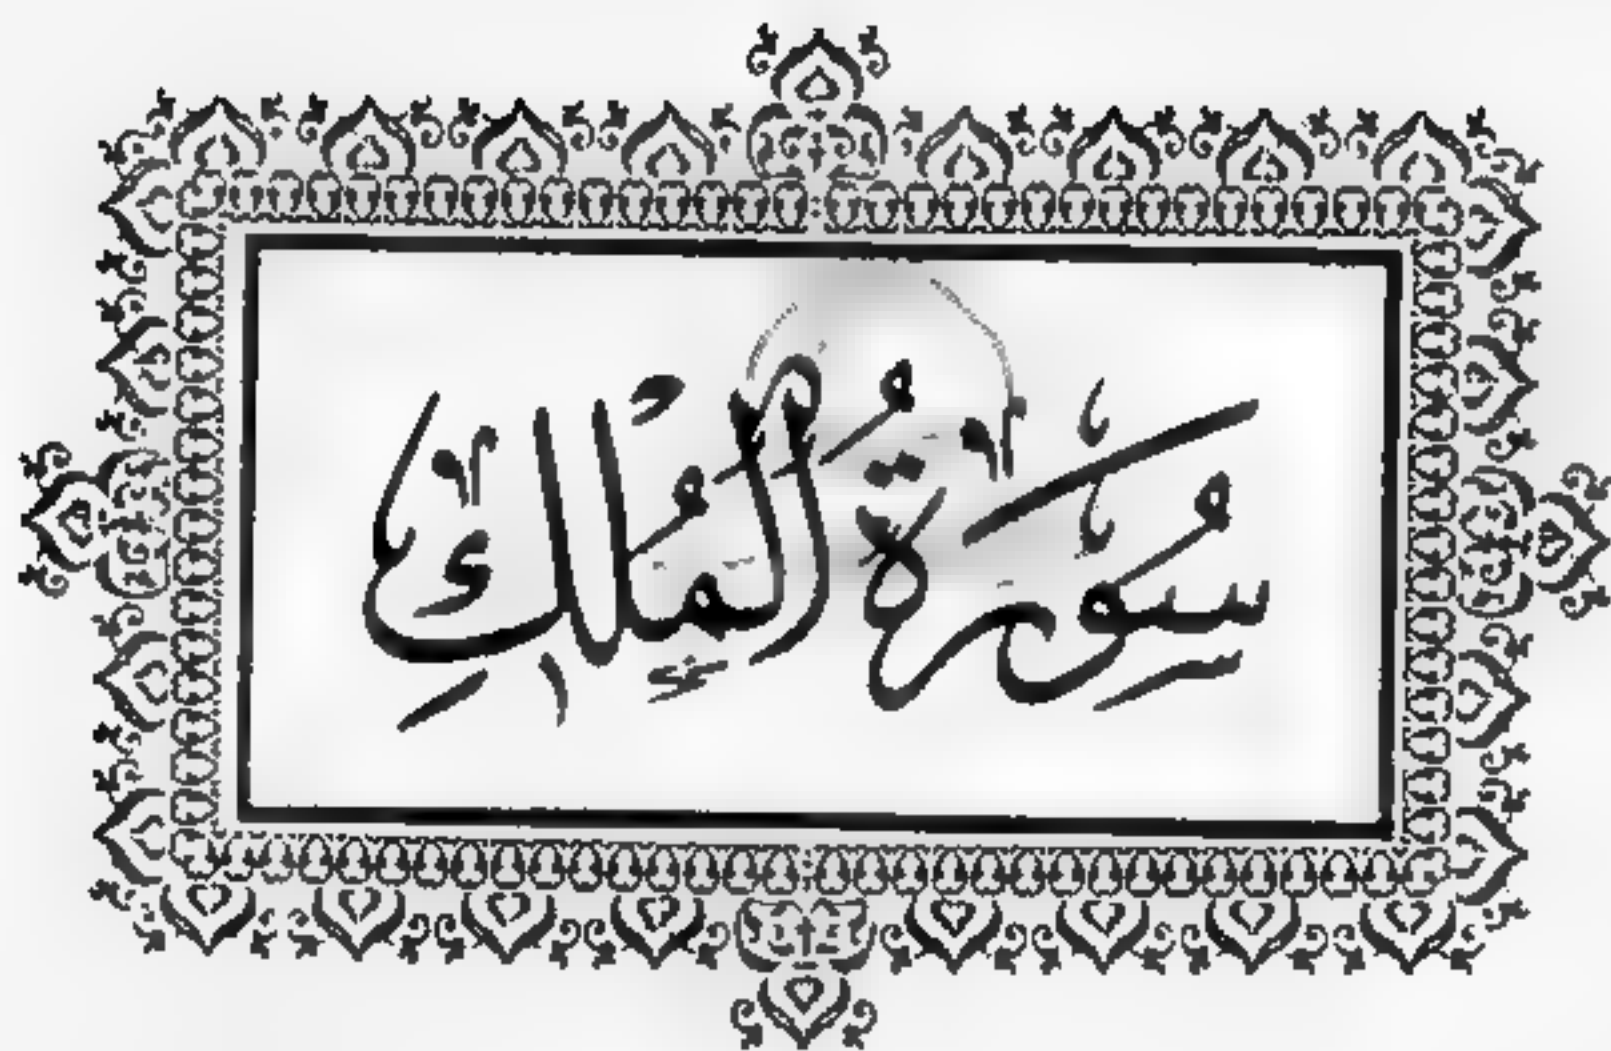 سُورَةُ الْمُلْكِ